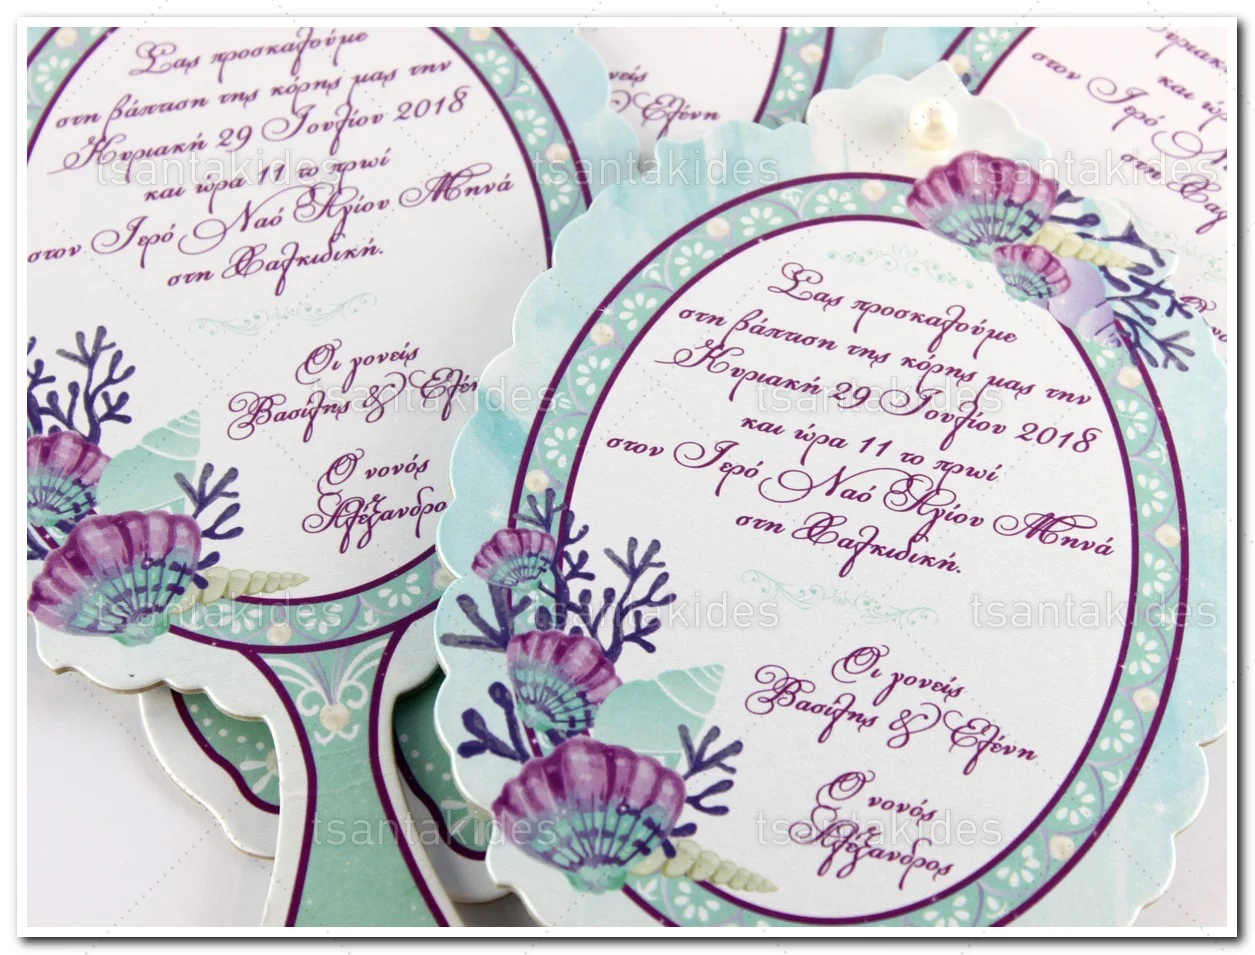 Σας προσκαλούμε
στη βάπτιση της κόρης μας την
Κυριακή 29 Ιουλίου 2018
και ώρα 11 το πρωί
στον Ιερό Ναό Αγίου Μηνά
στη Χαλκιδική.
Οι γονείς
Βασίλης & Ελένη
Ο νονός
Αλέξανδρος
Σας προσκαλούμε
στη βάπτιση της κόρης μας την
Κυριακή 29 Ιουλίου 2018
και ώρα 11 το πρωί
στον Ιερό Ναό Αγίου Μηνά
στη Χαλκιδική.
Οι γονείς
Βασίλης & Ελένη
Ο νονός
Αλέξανδρος
Ελένη
στον Ιερό
και ώρα
στη
tsantakides